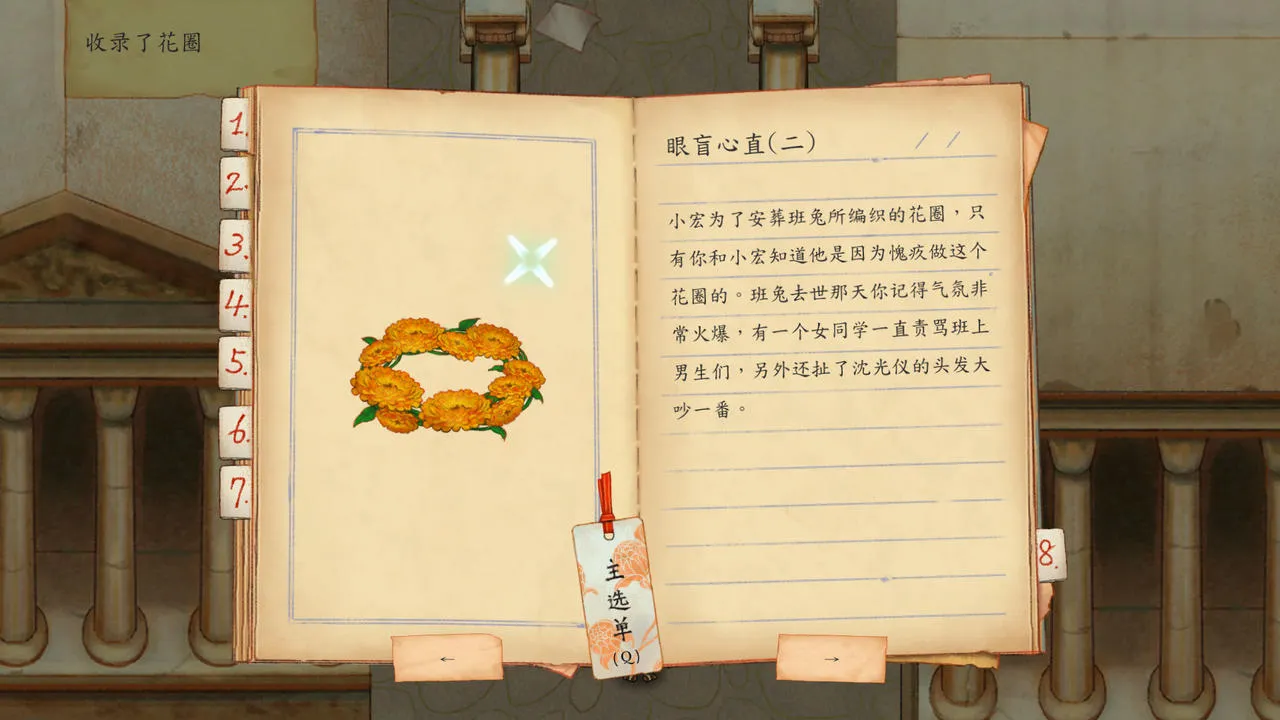 收录了花圈
1.
2.
3.
4.
5.
6.
7.
眼盲心直(二)
小宏为了安葬班兔所编织的花圈，只
有你和小宏知道他是因为愧疚做这个
花圈的。班兔去世那天你记得气氛非
常火爆，有一个女同学一直责骂班上
男生们，另外还扯了沈光仪的头发大
吵一番。
8.
主选单
(Q)
←
→